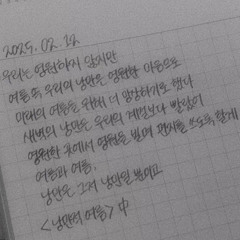 2025. 02. 12
우리는 영원하지 않지만
여름 속 우리의 낭만은 영원한 마음으로
미래의 여름을 위해 더 앙상하기로 했다
새벽의 낭만은 우리의 계절보다 빨랐이
영원한 곳에서 영원을 빌며 편지를 쓰도록 할게
여름과 여름,
낭만은 그저 낭만일 뿐이고
<낭만적 여름> 中